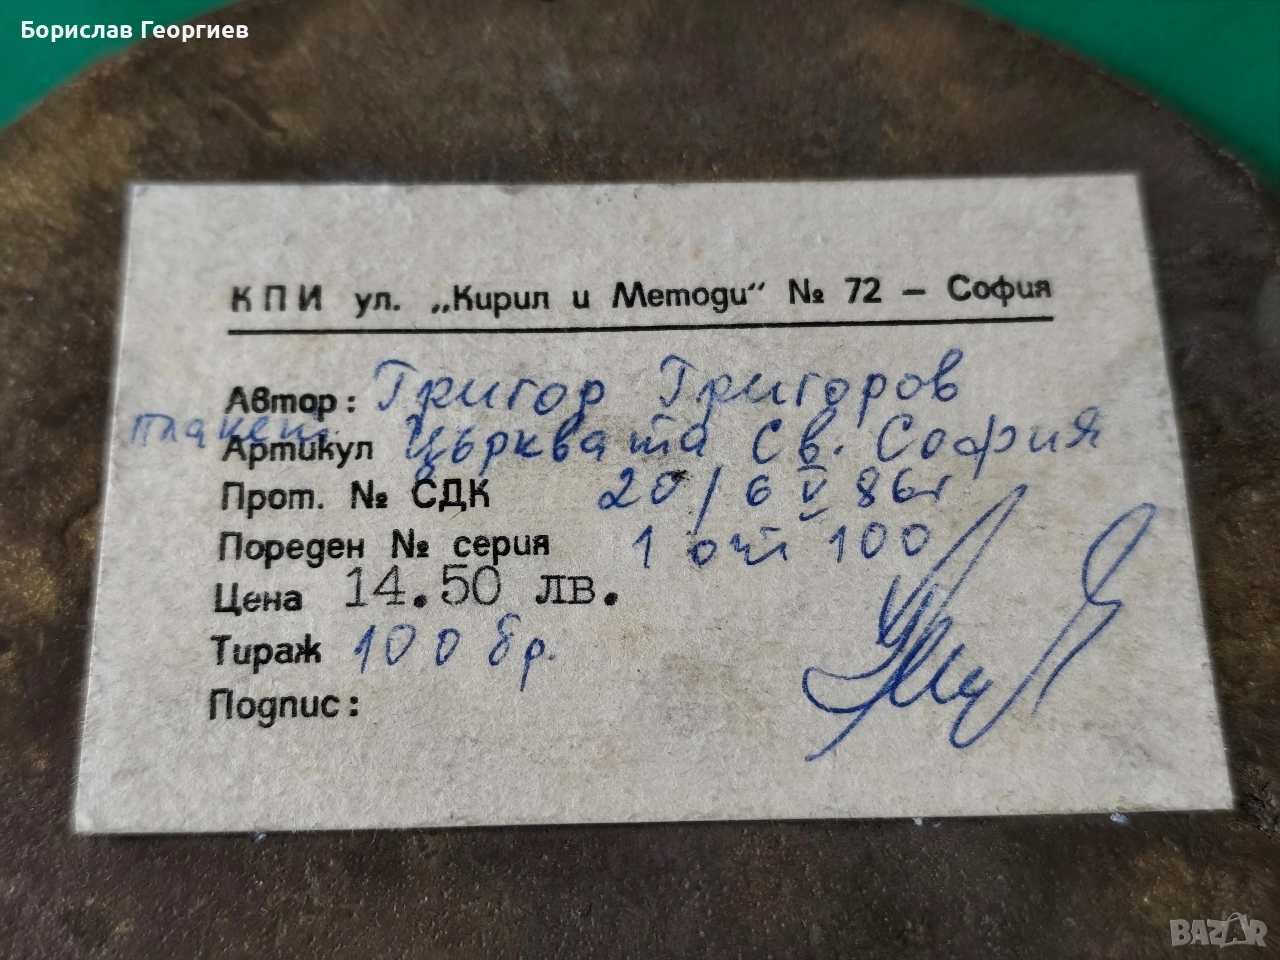 Борислав Георгиев
КПИ ул. „Кирил и Методи“ № 72 – София
Автор: Григор Григоров
плакет
Артикул Църквата Св. София
Прот. № СДК 20/6 V 86г
Пореден № серия 1 от 100
Цена 14.50 лв.
Тираж 100 бр.
Подпис:
BAZAR